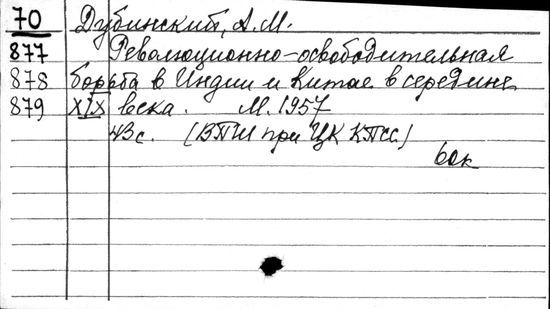 70 Дубинский, А.М.
877 Революционно-освободительная
878 борьба в Индии и Китае в середине
879 XIX века. М. 1957
43с. (ВПШ при ЦК КПСС)